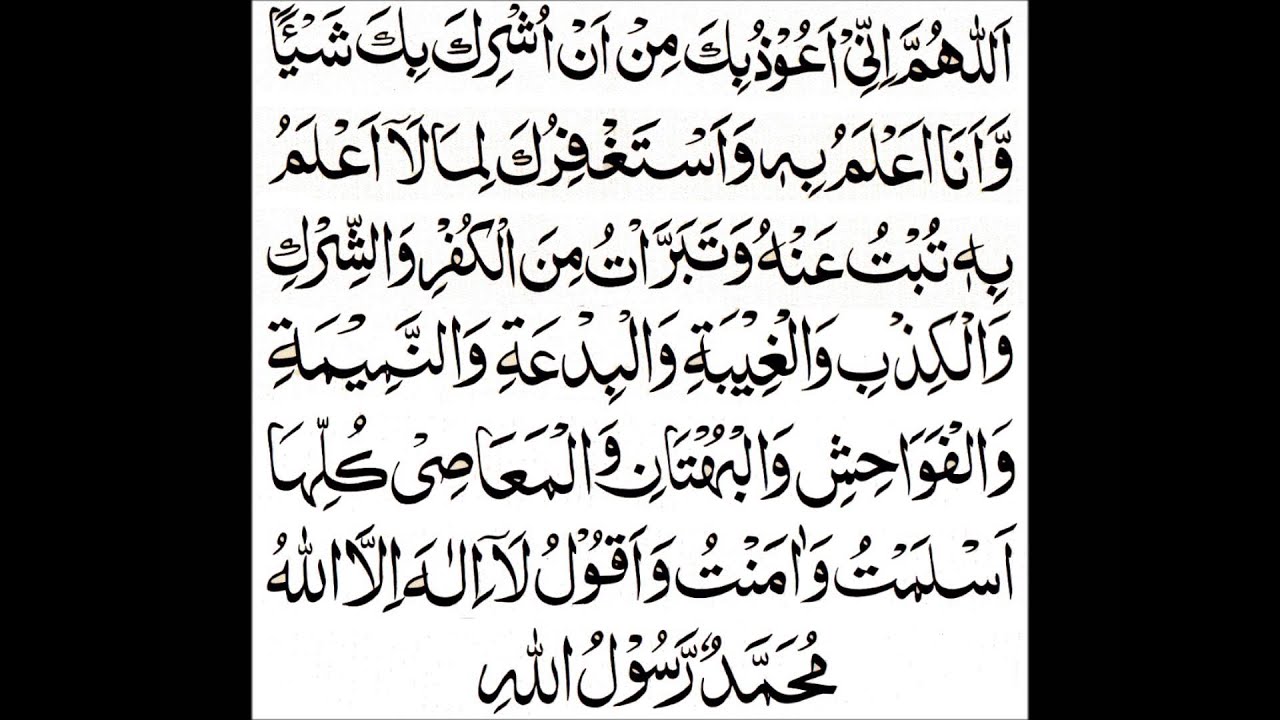 اَللّٰهُمَّ اِنِّیْۤ اَعُوْذُ بِكَ مِنْ اَنْ اُشْرِكَ بِكَ شَيْئًا
وَّاَنَا اَعْلَمُ بِهٖ وَاَسْتَغْفِرُكَ لِمَا لَاۤ اَعْلَمُ
بِهٖ تُبْتُ عَنْهُ وَتَبَرَّاْتُ مِنَ الْكُفْرِ وَالشِّرْكِ
وَالْكِذْبِ وَالْغِيْبَةِ وَالْبِدْعَةِ وَالنَّمِيْمَةِ
وَالْفَوَاحِشِ وَالْبُهْتَانِ وَالْمَعَاصِیْ كُلِّهَا
اَسْلَمْتُ وَاٰمَنْتُ وَاَقُوْلُ لَاۤ اِلٰهَ اِلَّا اللّٰهُ
مُحَمَّدٌ رَّسُوْلُ اللّٰهِ